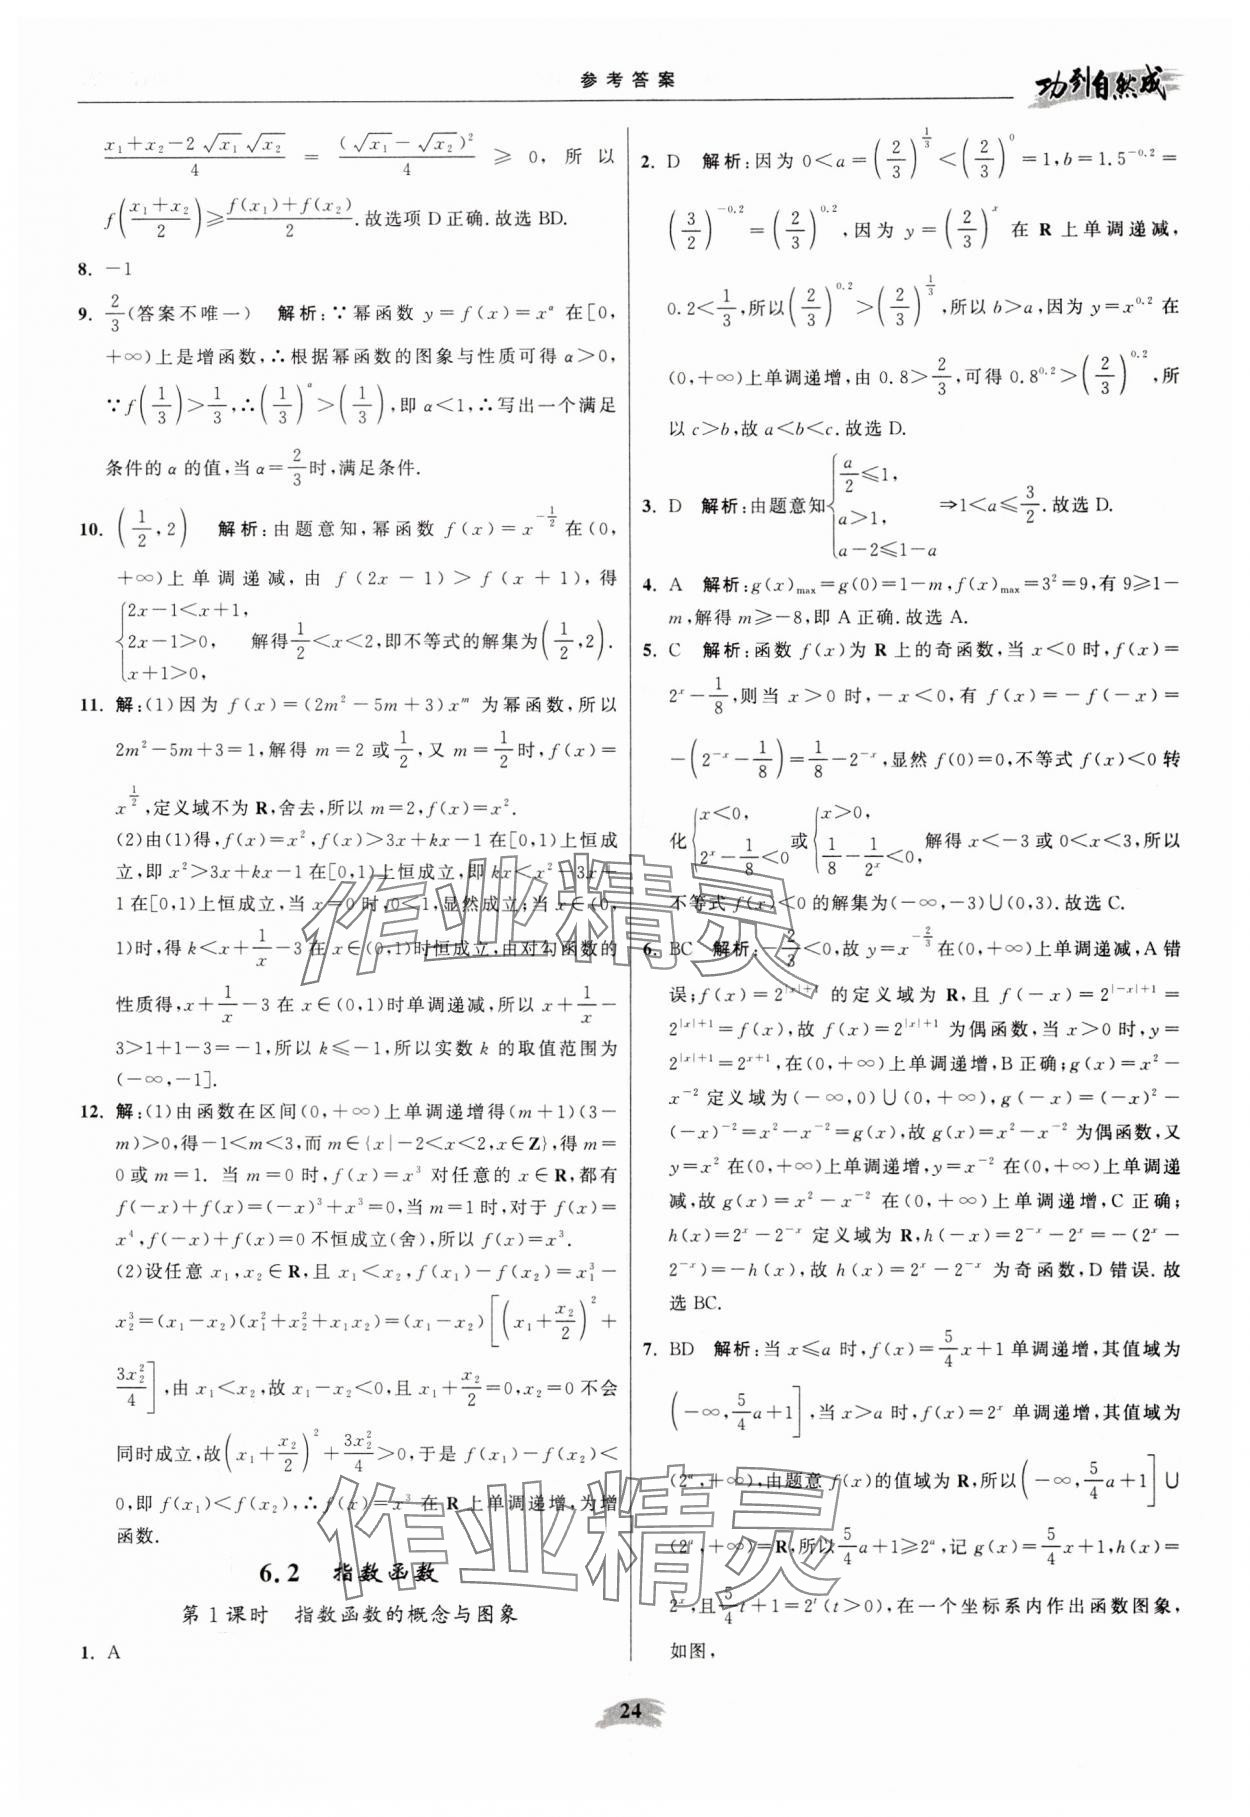 参考答案
功到自然成
(x₁+x₂-2√x₁√x₂)/4 = (√x₁-√x₂)²/4 ≥ 0,所以
f((x₁+x₂)/2)≥(f(x₁)+f(x₂))/2.故选项 D 正确.故选 BD.
8. -1
9. 2/3(答案不唯一) 解析:∵幂函数 y=f(x)=xᵅ 在[0,
+∞)上是增函数,∴根据幂函数的图象与性质可得 α>0,
∵f(1/3)>1/3,∴(1/3)ᵅ>(1/3),即 α<1,∴写出一个满足
条件的 α 的值,当 α=2/3时,满足条件.
10. (1/2,2) 解析:由题意知,幂函数 f(x)=x^(-1/2)在(0,
+∞)上单调递减,由 f(2x-1)>f(x+1),得
{2x-1<x+1,
2x-1>0, 解得1/2<x<2,即不等式的解集为(1/2,2).
x+1>0,
11. 解:(1)因为 f(x)=(2m²-5m+3)xᵐ 为幂函数,所以
2m²-5m+3=1,解得 m=2 或1/2,又 m=1/2时,f(x)=
x^(1/2),定义域不为 R,舍去,所以 m=2,f(x)=x².
(2)由(1)得,f(x)=x²,f(x)>3x+kx-1在[0,1)上恒成
立,即 x²>3x+kx-1在[0,1)上恒成立,即 kx<x²-3x+
1在[0,1)上恒成立,当 x=0时,0<1,显然成立;当 x∈(0,
1)时,得 k<x+1/x-3在 x∈(0,1)时恒成立,由对勾函数的
性质得,x+1/x-3 在 x∈(0,1)时单调递减,所以 x+1/x-
3>1+1-3=-1,所以 k≤-1,所以实数 k 的取值范围为
(-∞,-1].
12. 解:(1)由函数在区间(0,+∞)上单调递增得(m+1)(3-
m)>0,得-1<m<3,而 m∈{x|-2<x<2,x∈Z},得 m=
0 或 m=1. 当 m=0 时,f(x)=x³ 对任意的 x∈R,都有
f(-x)+f(x)=(-x)³+x³=0,当 m=1 时,对于 f(x)=
x⁴,f(-x)+f(x)=0 不恒成立(舍),所以 f(x)=x³.
(2)设任意 x₁,x₂∈R,且 x₁<x₂,f(x₁)-f(x₂)=x₁³-
x₂³=(x₁-x₂)(x₁²+x₂²+x₁x₂)=(x₁-x₂)[(x₁+x₂/2)²+
3x₂²/4],由 x₁<x₂,故 x₁-x₂<0,且 x₁+x₂/2=0,x₂=0 不会
同时成立,故(x₁+x₂/2)²+3x₂²/4>0,于是 f(x₁)-f(x₂)<
0,即 f(x₁)<f(x₂),∴f(x)=x³ 在 R 上单调递增,为增
函数.
6.2 指数函数
第 1 课时 指数函数的概念与图象
1. A
2. D 解析:因为 0<a=(2/3)^(1/3)<(2/3)⁰=1,b=1.5^(-0.2)=
(3/2)^(-0.2)=(2/3)^(0.2),因为 y=(2/3)ˣ 在 R 上单调递减,
0.2<1/3,所以(2/3)^(0.2)>(2/3)^(1/3),所以 b>a,因为 y=x^(0.2) 在
(0,+∞)上单调递增,由 0.8>2/3,可得 0.8^(0.2)>(2/3)^(0.2),所
以 c>b,故 a<b<c.故选 D.
3. D 解析:由题意知{a/2≤1,
a>1, ⇒1<a≤3/2.故选 D.
a-2≤1-a
4. A 解析:g(x)max=g(0)=1-m,f(x)max=3²=9,有 9≥1-
m,解得 m≥-8,即 A 正确.故选 A.
5. C 解析:函数 f(x)为 R 上的奇函数,当 x<0 时,f(x)=
2ˣ-1/8,则当 x>0 时,-x<0,有 f(x)=-f(-x)=
-(2⁻ˣ-1/8)=1/8-2⁻ˣ,显然 f(0)=0,不等式 f(x)<0 转
化{x<0, 2ˣ-1/8<0 或{x>0, 1/8-1/2ˣ<0, 解得 x<-3 或 0<x<3,所以
不等式 f(x)<0 的解集为(-∞,-3)∪(0,3).故选 C.
6. BC 解析:-2/3<0,故 y=x^(-2/3)在(0,+∞)上单调递减,A 错
误;f(x)=2^(|x|+1) 的定义域为 R,且 f(-x)=2^(|-x|+1)=
2^(|x|+1)=f(x),故 f(x)=2^(|x|+1) 为偶函数,当 x>0 时,y=
2^(|x|+1)=2^(x+1),在(0,+∞)上单调递增,B 正确;g(x)=x²-
x⁻² 定义域为(-∞,0)∪(0,+∞),g(-x)=(-x)²-
(-x)⁻²=x²-x⁻²=g(x),故 g(x)=x²-x⁻² 为偶函数,又
y=x² 在(0,+∞)上单调递增,y=x⁻² 在(0,+∞)上单调递
减,故 g(x)=x²-x⁻² 在(0,+∞)上单调递增,C 正确;
h(x)=2ˣ-2⁻ˣ定义域为 R,h(-x)=2⁻ˣ-2ˣ=-(2ˣ-
2⁻ˣ)=-h(x),故 h(x)=2ˣ-2⁻ˣ 为奇函数,D 错误.故
选 BC.
7. BD 解析:当 x≤a 时,f(x)=5/4x+1 单调递增,其值域为
(-∞,5/4a+1],当 x>a 时,f(x)=2ˣ 单调递增,其值域为
(2ᵃ,+∞),由题意 f(x)的值域为 R,所以(-∞,5/4a+1]∪
(2ᵃ,+∞)=R,所以5/4a+1≥2ᵃ,记 g(x)=5/4x+1,h(x)=
2ˣ,且5/4t+1=2ᵗ(t>0),在一个坐标系内作出函数图象,
如图,
作业精灵
作业精灵
24